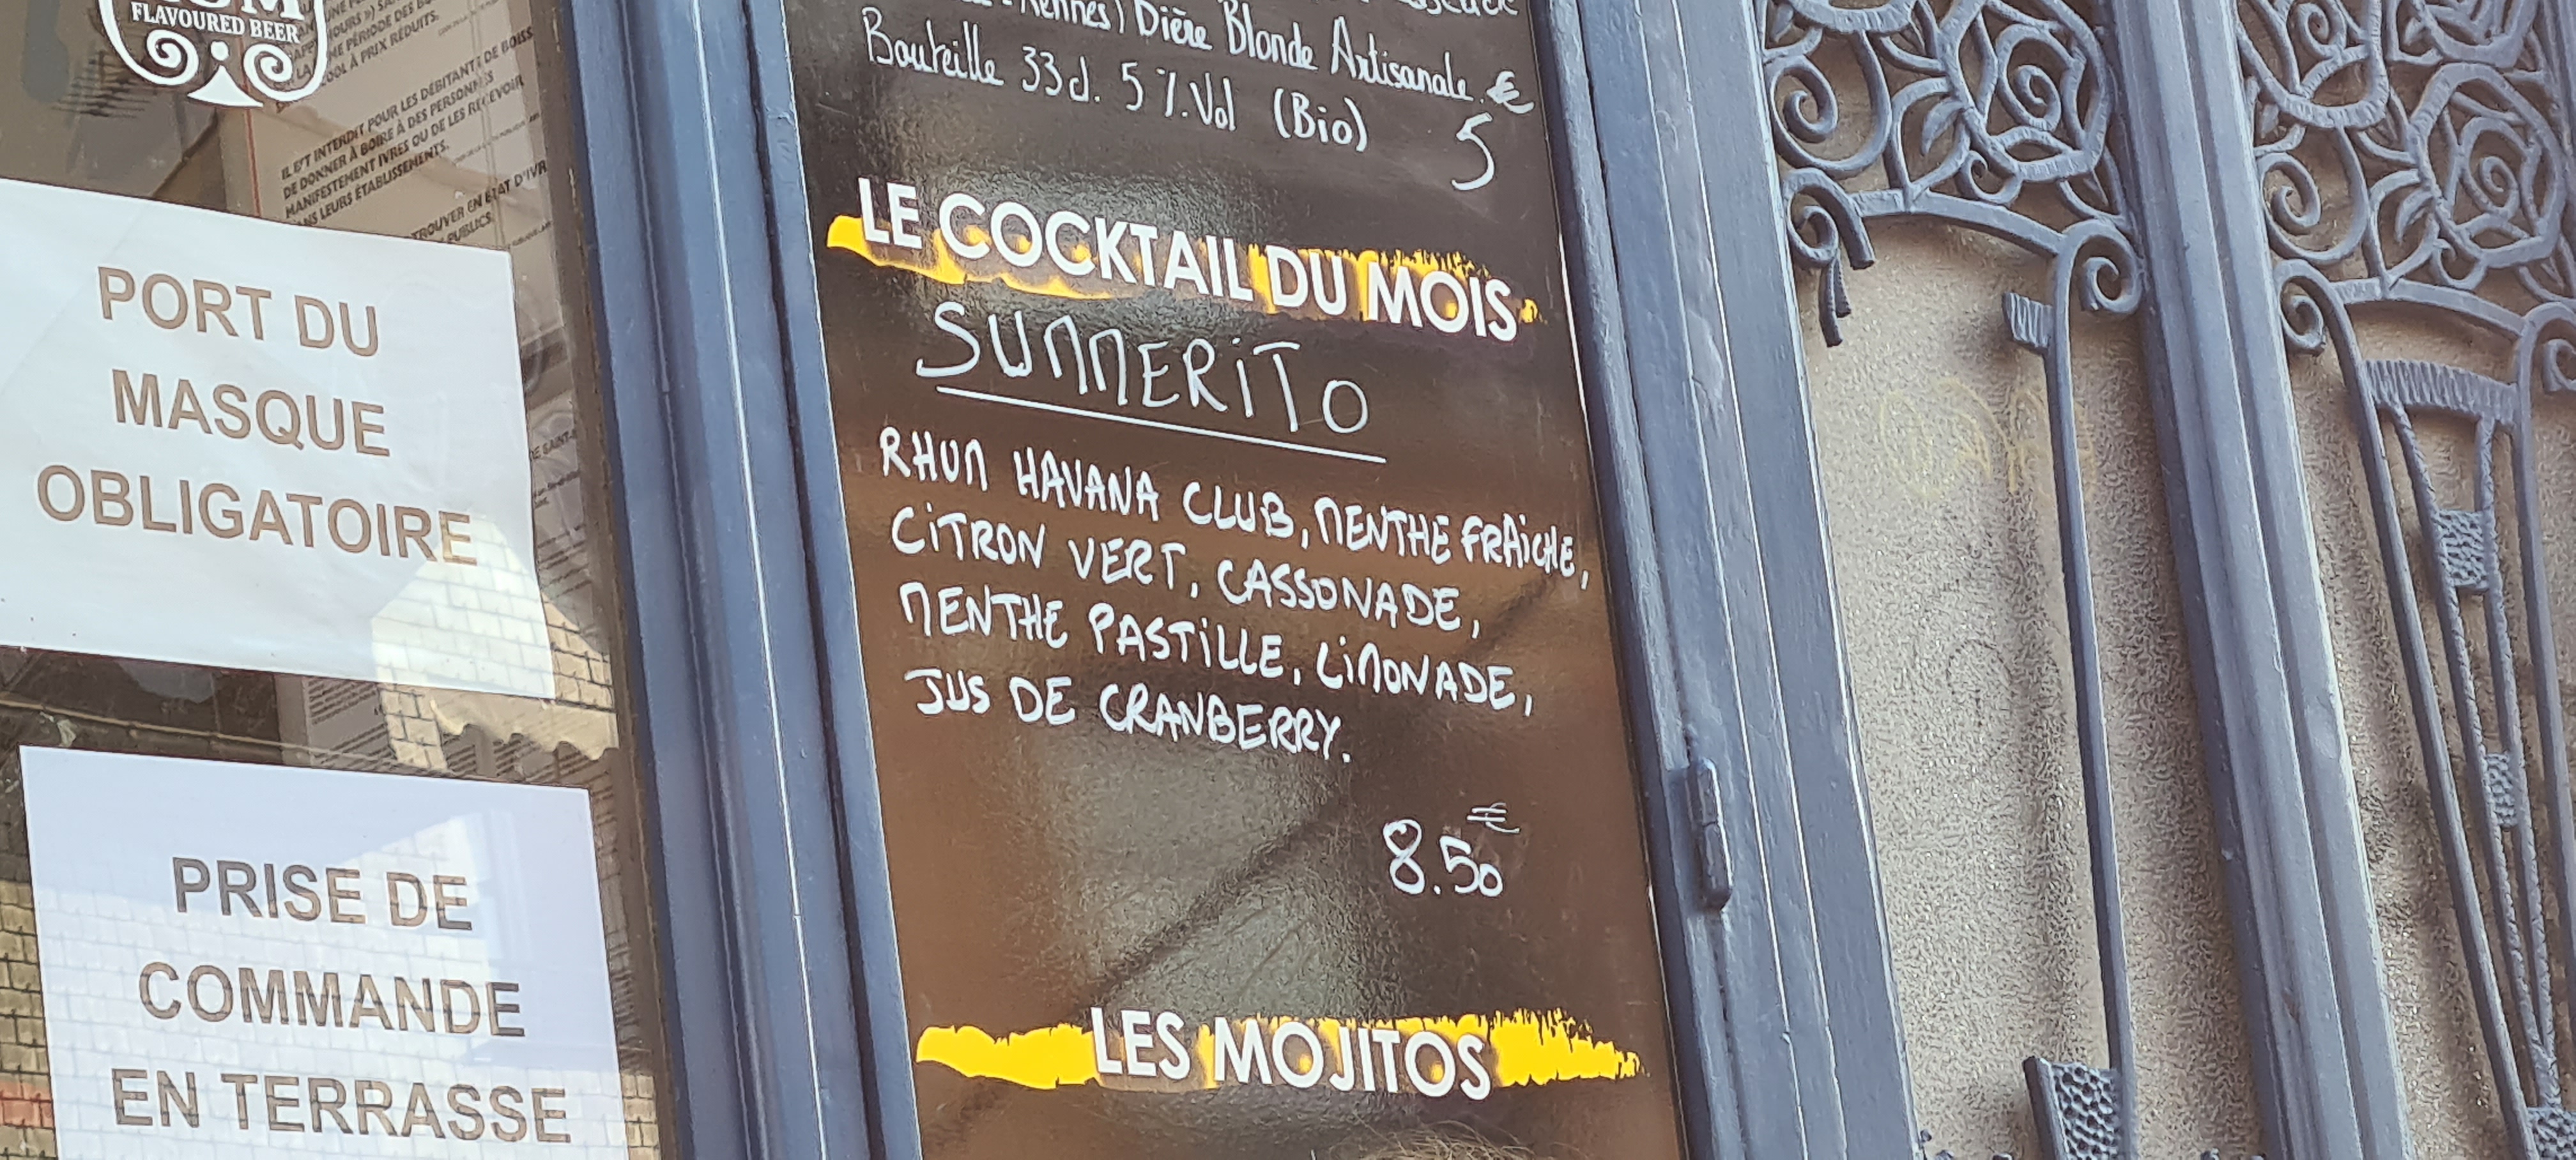 FLAVOURED BEER
À PRIX RÉDUITS.
IL EST INTERDIT POUR LES DÉBITANTS DE BOISS
DE DONNER À BOIRE À DES PERSONNES
MANIFESTEMENT IVRES OU DE LES RECEVOIR
LEURS ÉTABLISSEMENTS.
TROUVER EN ÉTAT D'IVR
PUBLICS.
PORT DU
MASQUE
OBLIGATOIRE
PRISE DE
COMMANDE
EN TERRASSE
Rennes) Bière Blonde Artisanale. €
Bouteille 33cl. 5%.Vol (Bio) 5
LE COCKTAIL DU MOIS
SUMMERITO
RHUM HAVANA CLUB, MENTHE FRAÎCHE,
CITRON VERT, CASSONADE,
MENTHE PASTILLE, LIMONADE,
JUS DE CRANBERRY.
8.50€
LES MOJITOS